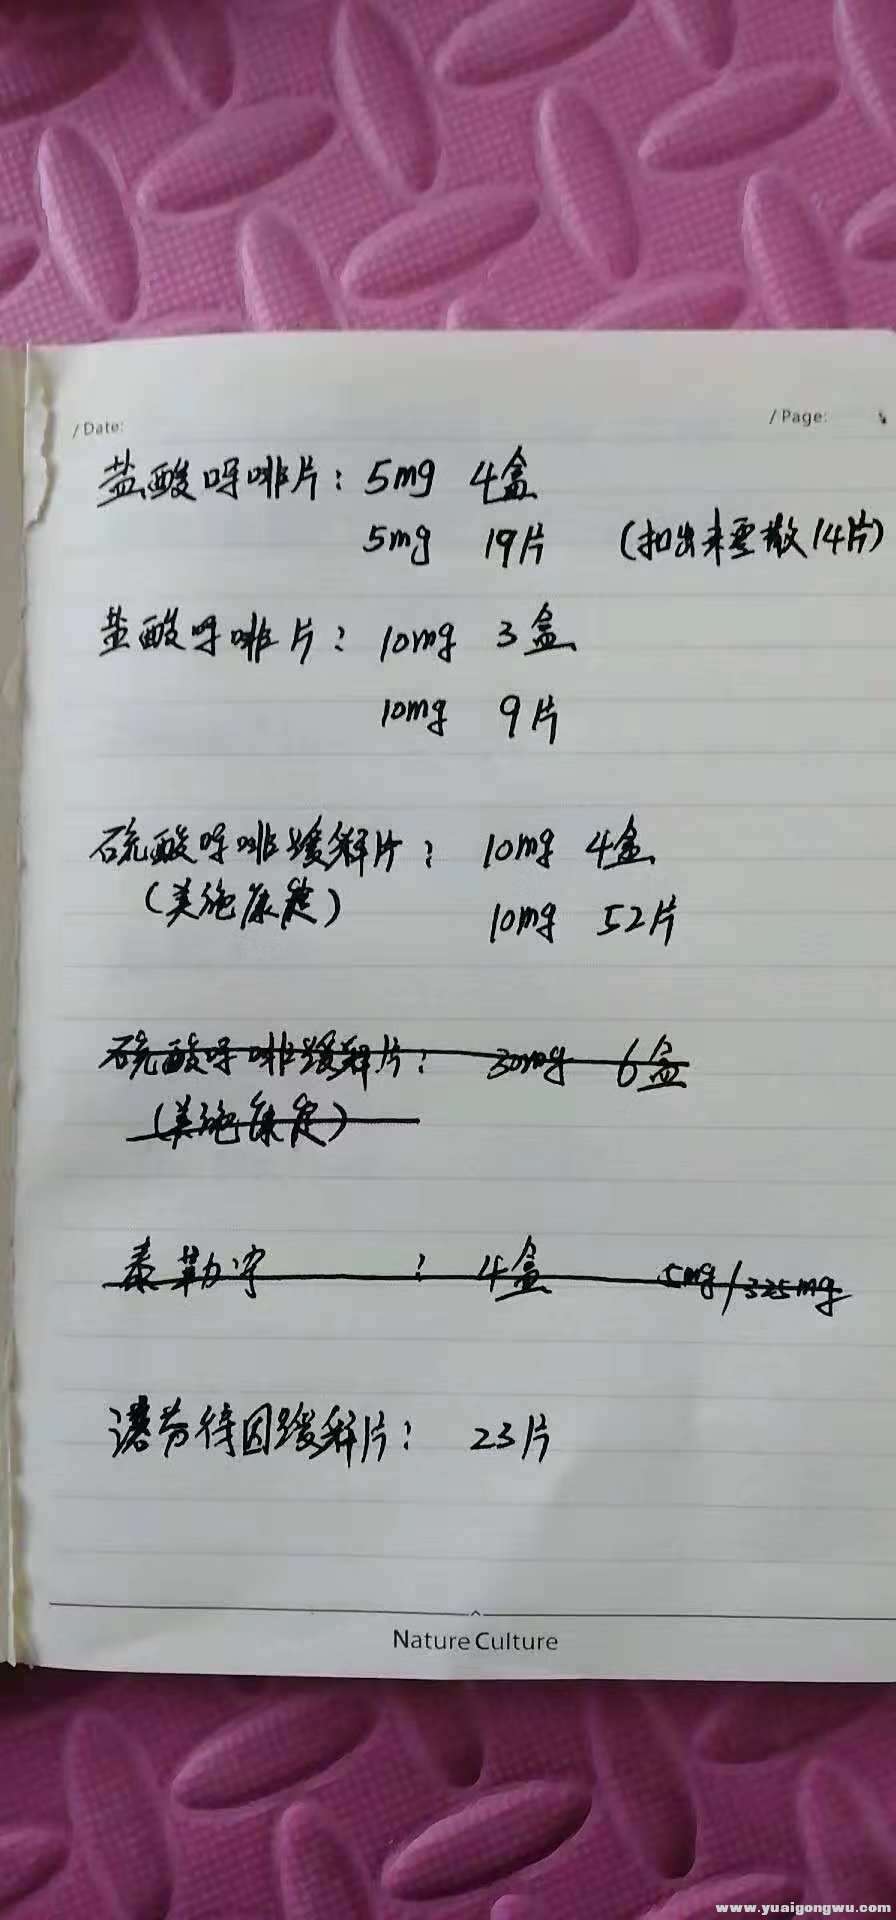 / Date:
/ Page:
盐酸吗啡片: 5mg 4盒
5mg 19片 (扣出来零散14片)
盐酸吗啡片: 10mg 3盒
10mg 9片
硫酸吗啡缓释片: 10mg 4盒
(美施康定)
10mg 52片
硫酸吗啡缓释片: 30mg 6盒
(美施康定)
泰勒宁 : 4盒 5mg/325mg
洛芬待因缓释片: 23片
Nature Culture
www.yuaigongwu.com